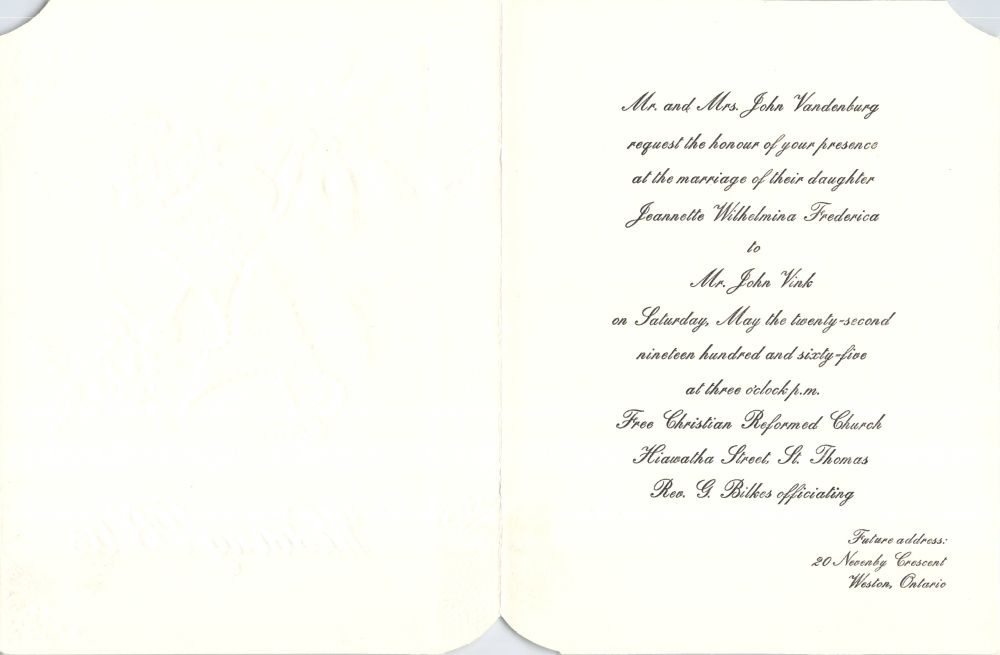 Mr. and Mrs. John Vandenburg
request the honour of your presence
at the marriage of their daughter
Jeannette Wilhelmina Frederica
to
Mr. John Vink
on Saturday, May the twenty-second
nineteen hundred and sixty-five
at three o'clock p.m.
Free Christian Reformed Church
Hiawatha Street, St. Thomas
Rev. G. Bilkes officiating
Future address:
20 Nevenby Crescent
Weston, Ontario